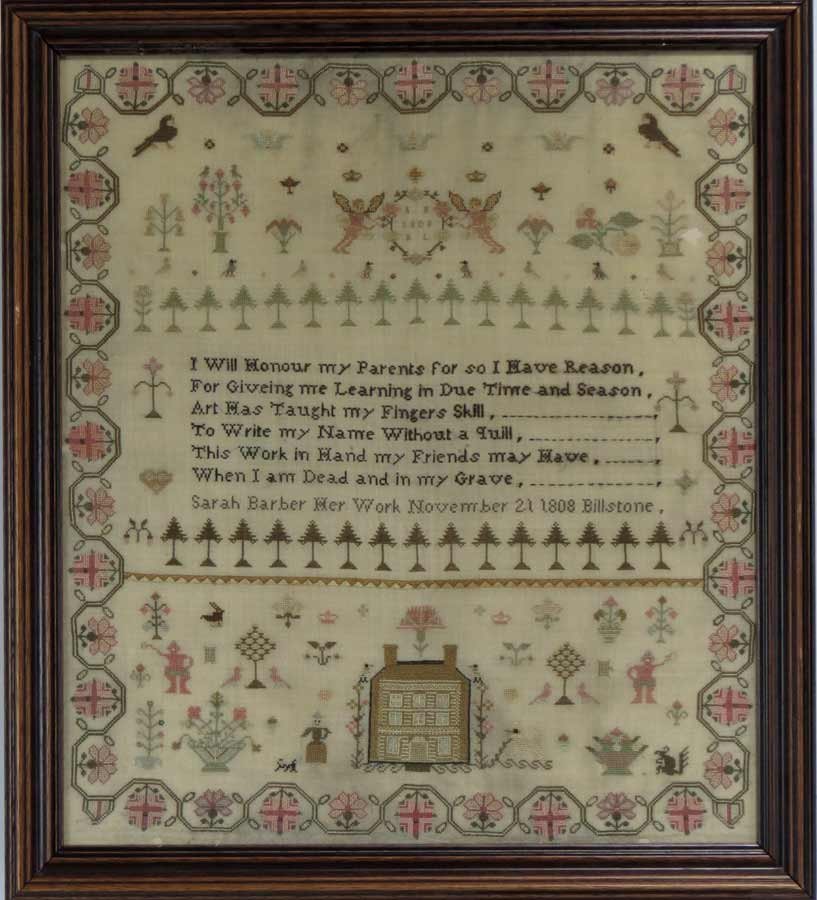 1808
I Will Honour my Parents for so I Have Reason,
For Giveing me Learning in Due Time and Season,
Art Has Taught my Fingers Skill,
To Write my Name Without a Quill,
This Work in Hand my Friends may Have,
When I am Dead and in my Grave,
Sarah Barber Her Work November 21 1808 Billstone,